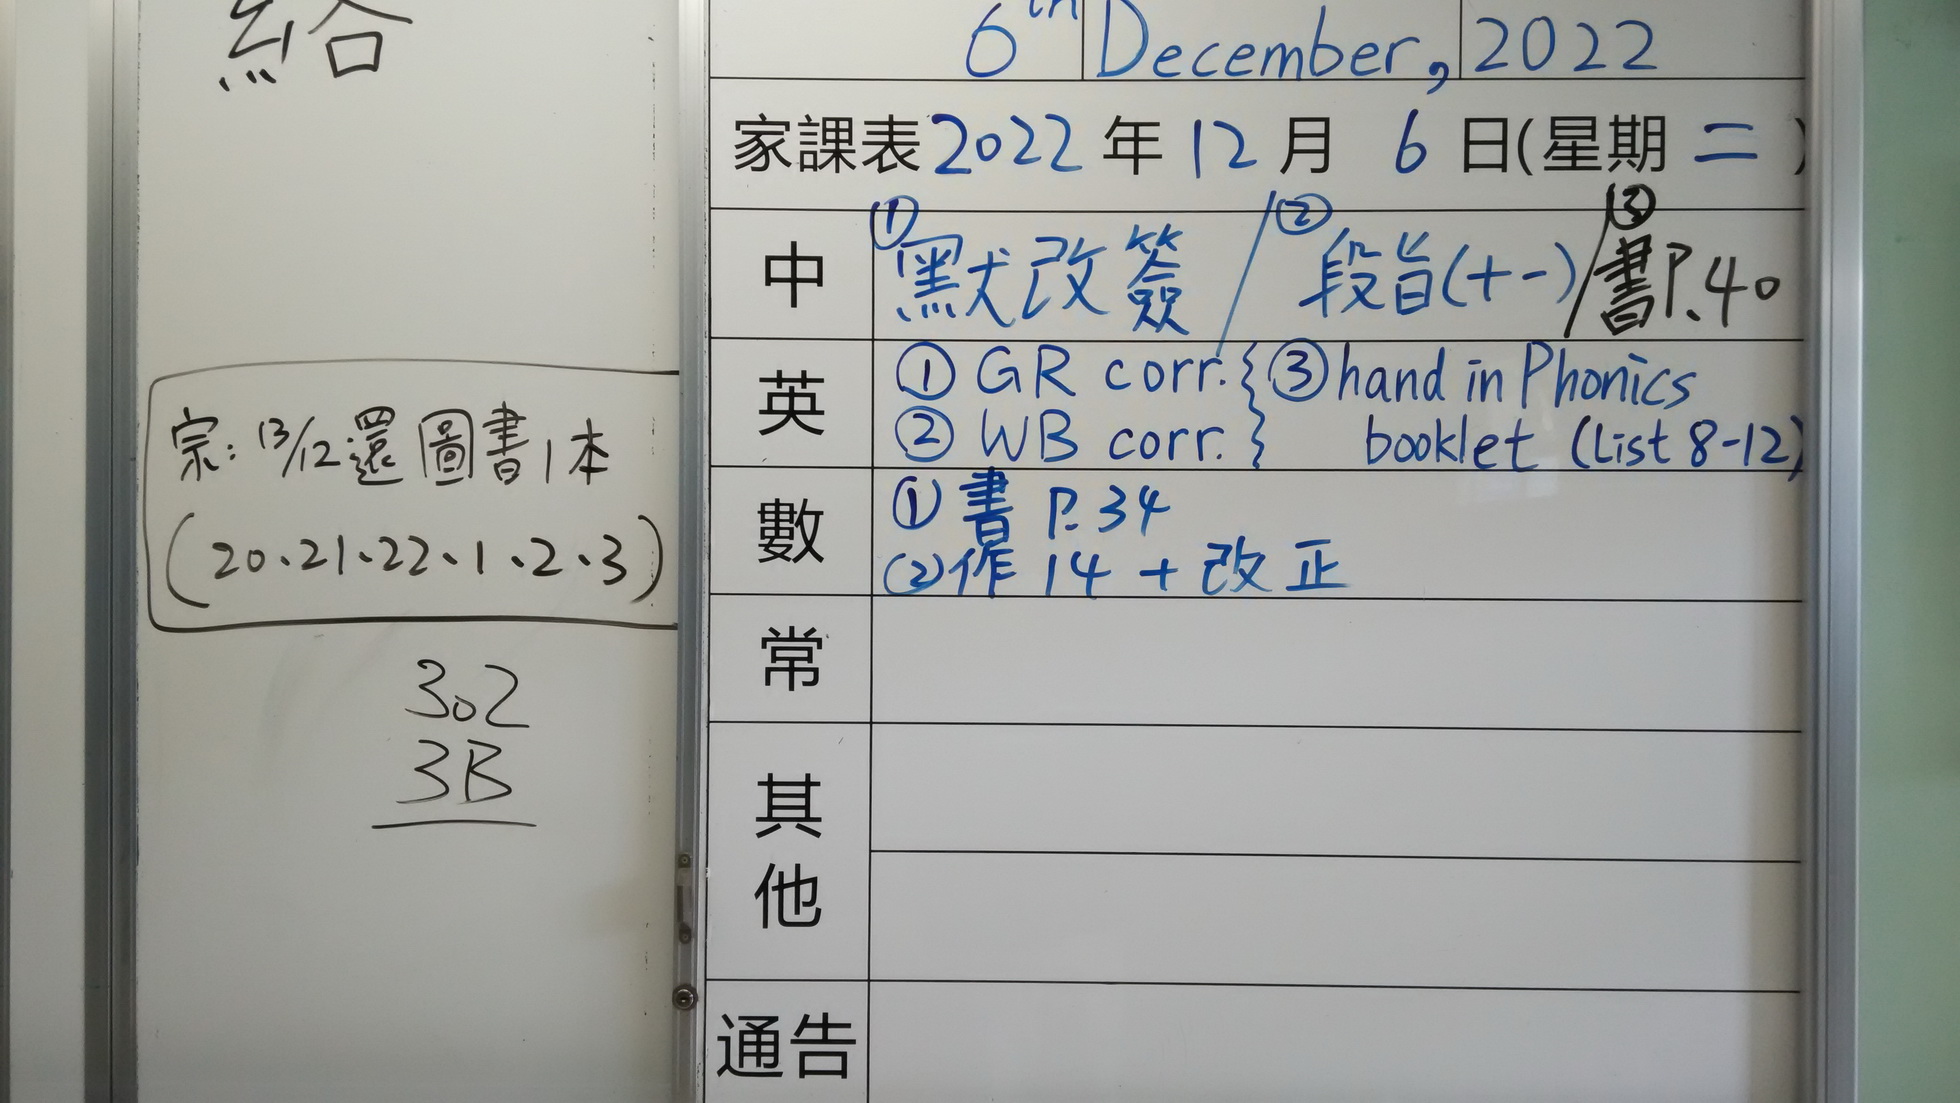 給
宗: 13/12還圖書1本
(20、21、22、1、2、3)
302
3B
6th December, 2022
家課表2022年12月6日(星期二)
中 ①默改簽/②段旨(十一)/③書P.40
英 ① GR corr. } ③ hand in Phonics
② WB corr. } booklet (List 8-12)
數 ① 書 P.34
(2)作 14 + 改正
常
其他
通告